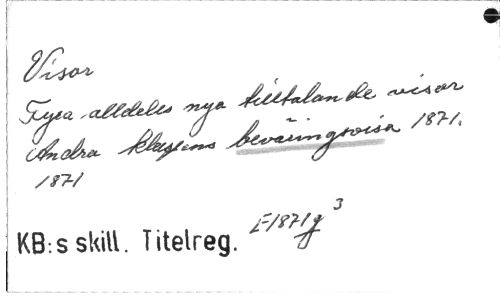 Visor
Fyra alldeles nya tilltalande visor
Andra klassens beväringsvisa 1871.
1871
KB:s skill. Titelreg. E1871g 3